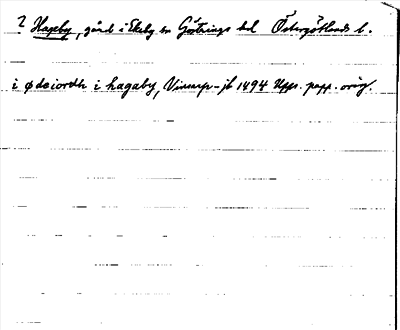 ? Hageby, gård i Ekeby sn Göstrings hd Östergötlands l.
i ødeiordh i hagaby, Vinarp-jb 1494 Upps. papp. orig.